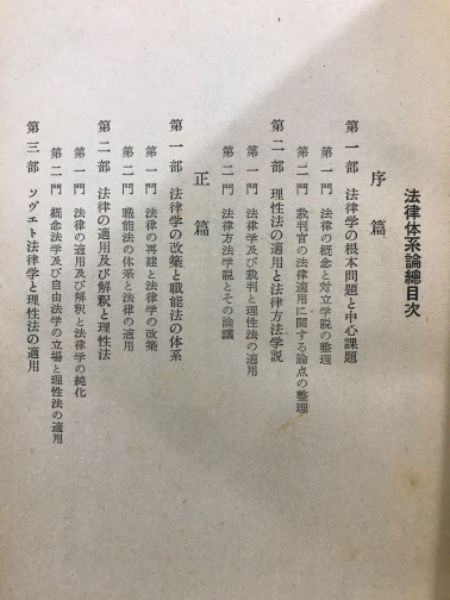 法律体系論總目次
序篇
第一部 法律学の根本問題と中心課題
第一門 法律の概念と対立学説の整理
第二門 裁判官の法律適用に関する論点の整理
第二部 理性法の適用と法律方法学説
第一門 法律学及び裁判と理性法の適用
第二門 法律方法学説とその論議
正篇
第一部 法律学の改築と職能法の体系
第一門 法律の再建と法律学の改築
第二門 職能法の体系と法律の適用
第二部 法律の適用及び解釈と理性法
第一門 法律の適用及び解釈と法律学の純化
第二門 概念法学及び自由法学の立場と理性法の適用
第三部 ソヴェト法律学と理性法の適用